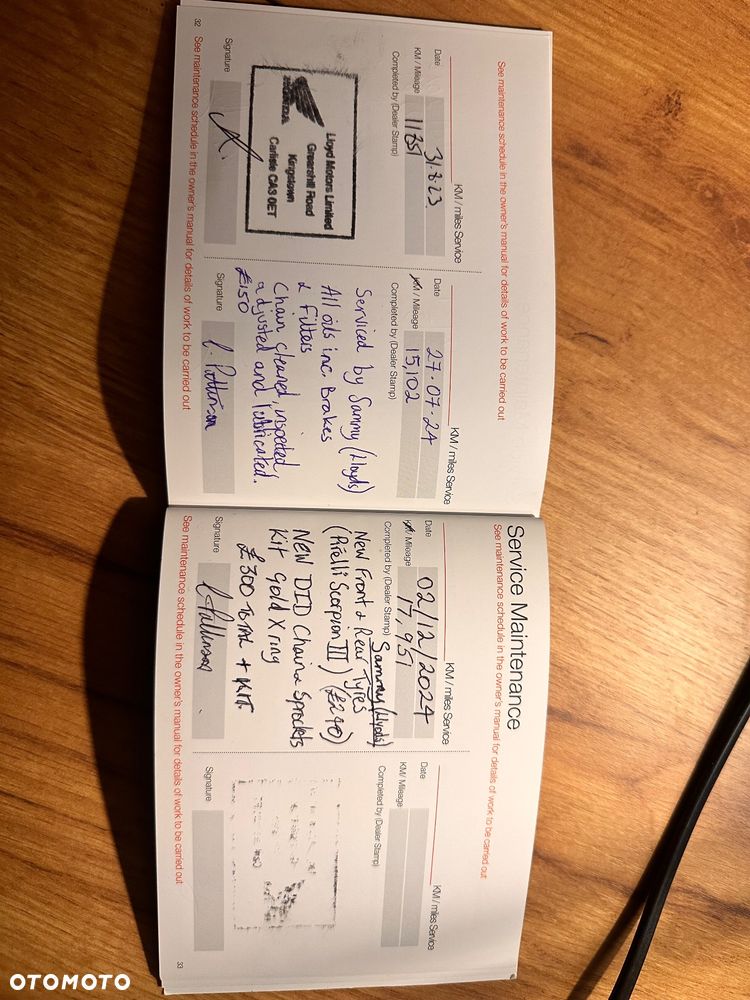 See maintenance schedule in the owner's manual for details of work to be carried out
KM / miles Service
Date 31.8.23
KM / Mileage 11851
Completed by (Dealer Stamp)
HONDA
Lloyd Motors Limited
Grearshill Road
Kingstown
Carlisle CA3 0ET
Signature
32 See maintenance schedule in the owner's manual for details of work to be carried out
KM / miles Service
Date 27.07.24
KM / Mileage 15,102
Completed by (Dealer Stamp)
Serviced by Sammy (Lloyds)
All oils inc. Brakes
& Filters
Chain cleaned, inspected
adjusted and lubricated.
£150
Signature
Service Maintenance
See maintenance schedule in the owner's manual for details of work to be carried out
KM / miles Service
Date 02/12/2024
KM / Mileage 17,951
Completed by (Dealer Stamp) Sammy (Lloyds)
New Front & Rear Tyres
(Pirelli Scorpion III) (£240)
NEW DID Chain & Sprockets
Kit Gold X ring
£300 TOTAL +
Signature
See maintenance schedule in the owner's manual for details of work to be carried out
KM / miles Service
Date
KM / Mileage
Completed by (Dealer Stamp)
Signature
33
OTOMOTO